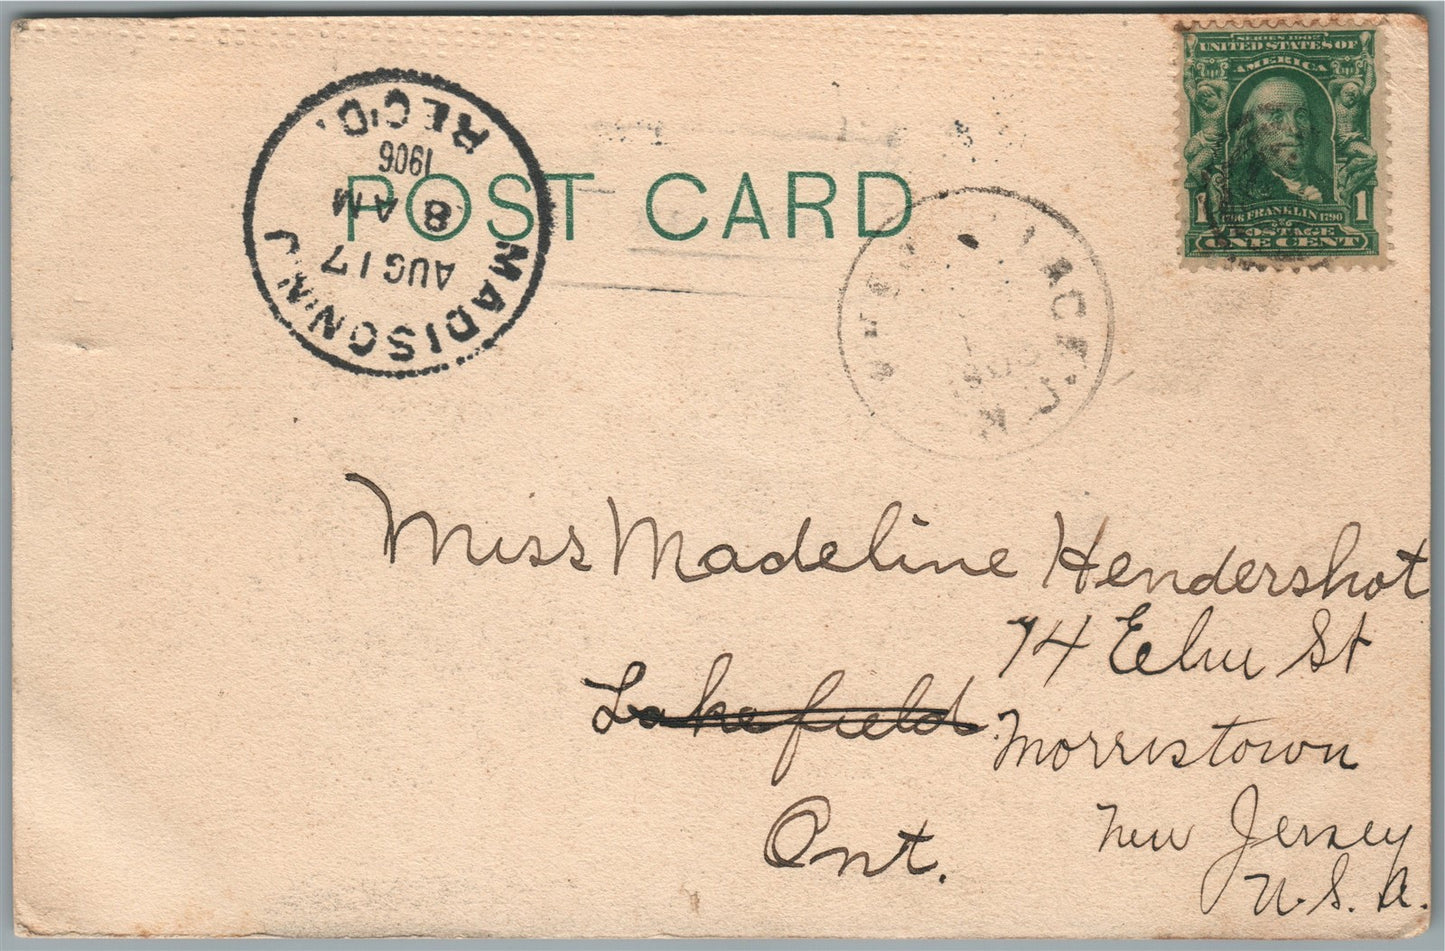 SERIES 1902
UNITED STATES OF
AMERICA
1 1
1706 FRANKLIN 1790
POSTAGE
ONE CENT
POST CARD
MADISON, N.J.
AUG 17
8 AM
1906
REC'D.
Miss Madeline Hendershot
74 Elm St
Lakefield
Morristown
Ont.
New Jersey
U.S.A.